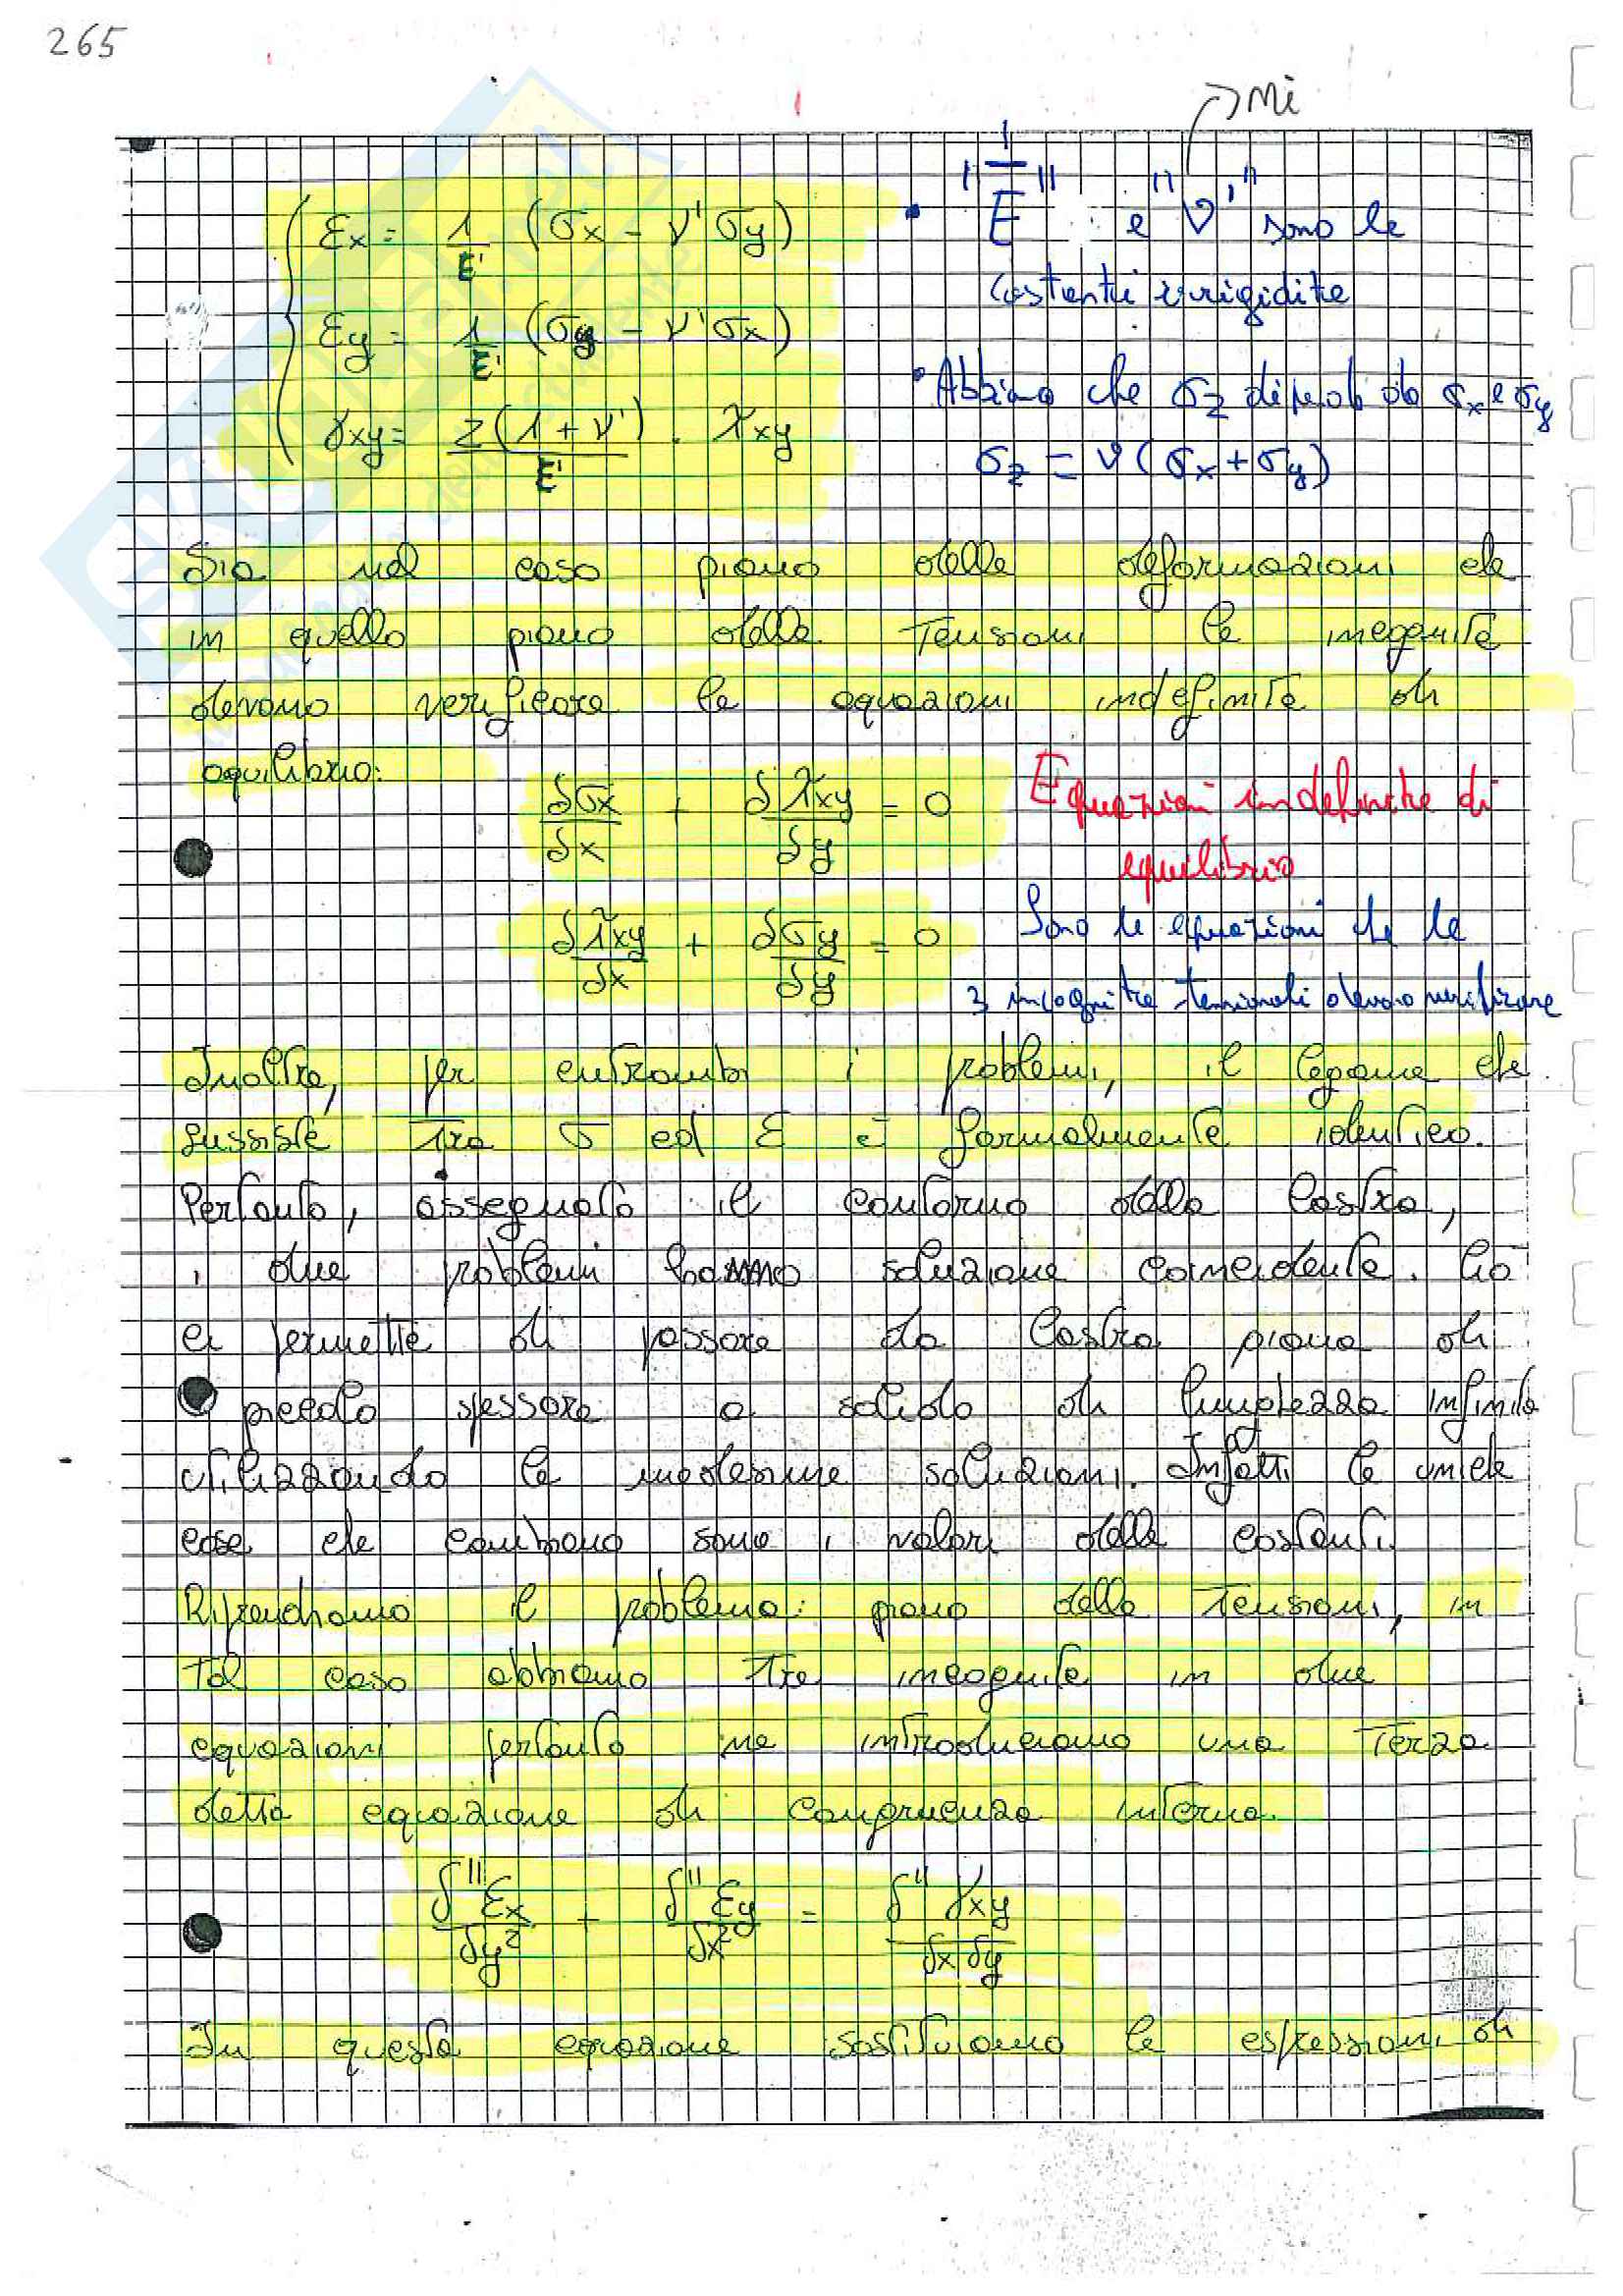 265
→ Mi
εx = 1/E' (σx - ν'σy)
εy = 1/E' (σy - ν'σx)
γxy = 2(1+ν')/E' · τxy
• "1/E" e "ν'" sono le
costanti irrigidite
• Abbiamo che σz dipende da σx e σy
σz = ν(σx+σy)
Sia nel caso piano delle deformazioni che
in quello piano delle tensioni le incognite
devono verificare le equazioni indefinite di
equilibrio:
δσx/δx + δτxy/δy = 0
Equazioni indefinite di
equilibrio
δτxy/δx + δσy/δy = 0
Sono le equazioni che le
3 incognite tensionali devono verificare
Inoltre, per entrambi i problemi, il legame che
sussiste tra σ ed ε è formalmente identico.
Pertanto, assegnato il contorno della lastra,
i due problemi hanno soluzione coincidente. Ciò
ci permette di passare da lastra piana di
piccolo spessore a solido di lunghezza infinita
utilizzando le medesime soluzioni. Infatti le uniche
cose che cambiano sono i valori delle costanti.
Riprendiamo il problema piano delle tensioni, in
tal caso abbiamo tre incognite in due
equazioni pertanto ne introduciamo una terza
detta equazione di congruenza interna.
δ"εx/δy² + δ"εy/δx² = δ"γxy/δxδy
In questa equazione sostituiamo le espressioni di